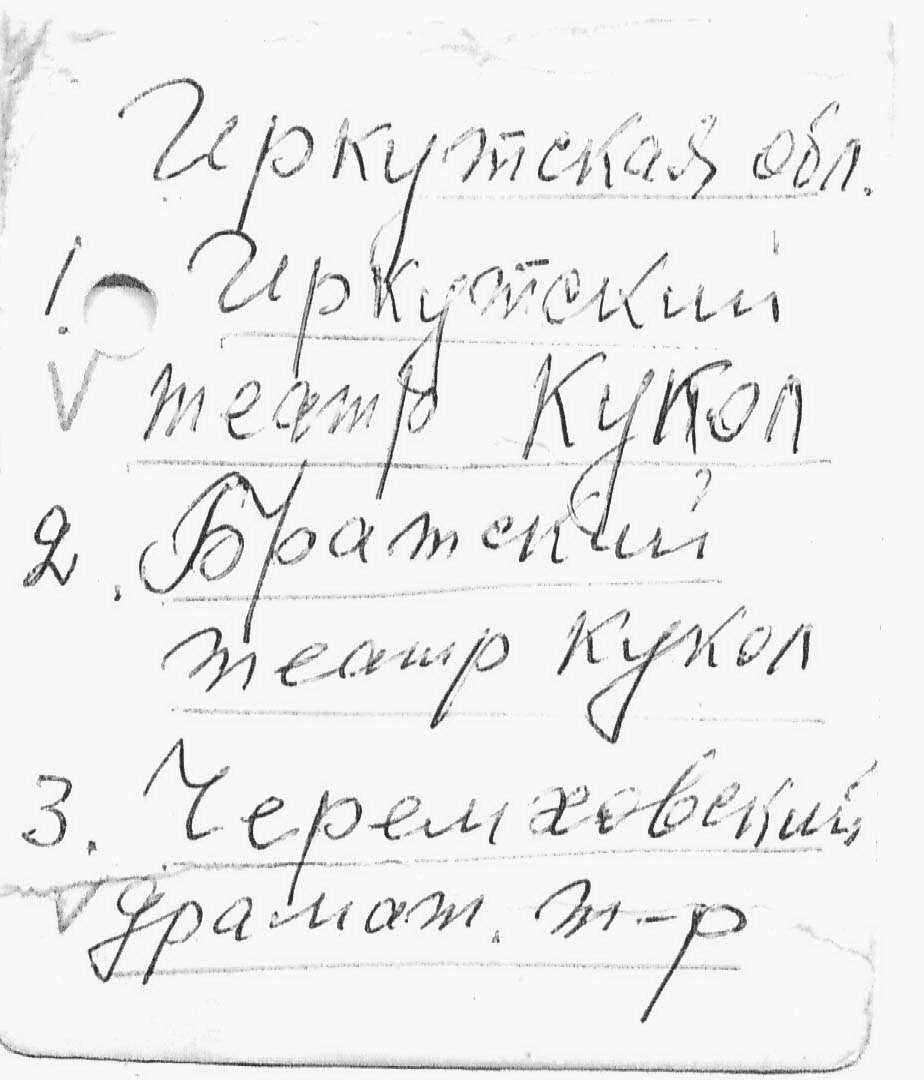 Иркутская обл.
1. Иркутский
V театр Кукол
2. Братский
театр кукол
3. Черемховский
V драмат. т-р